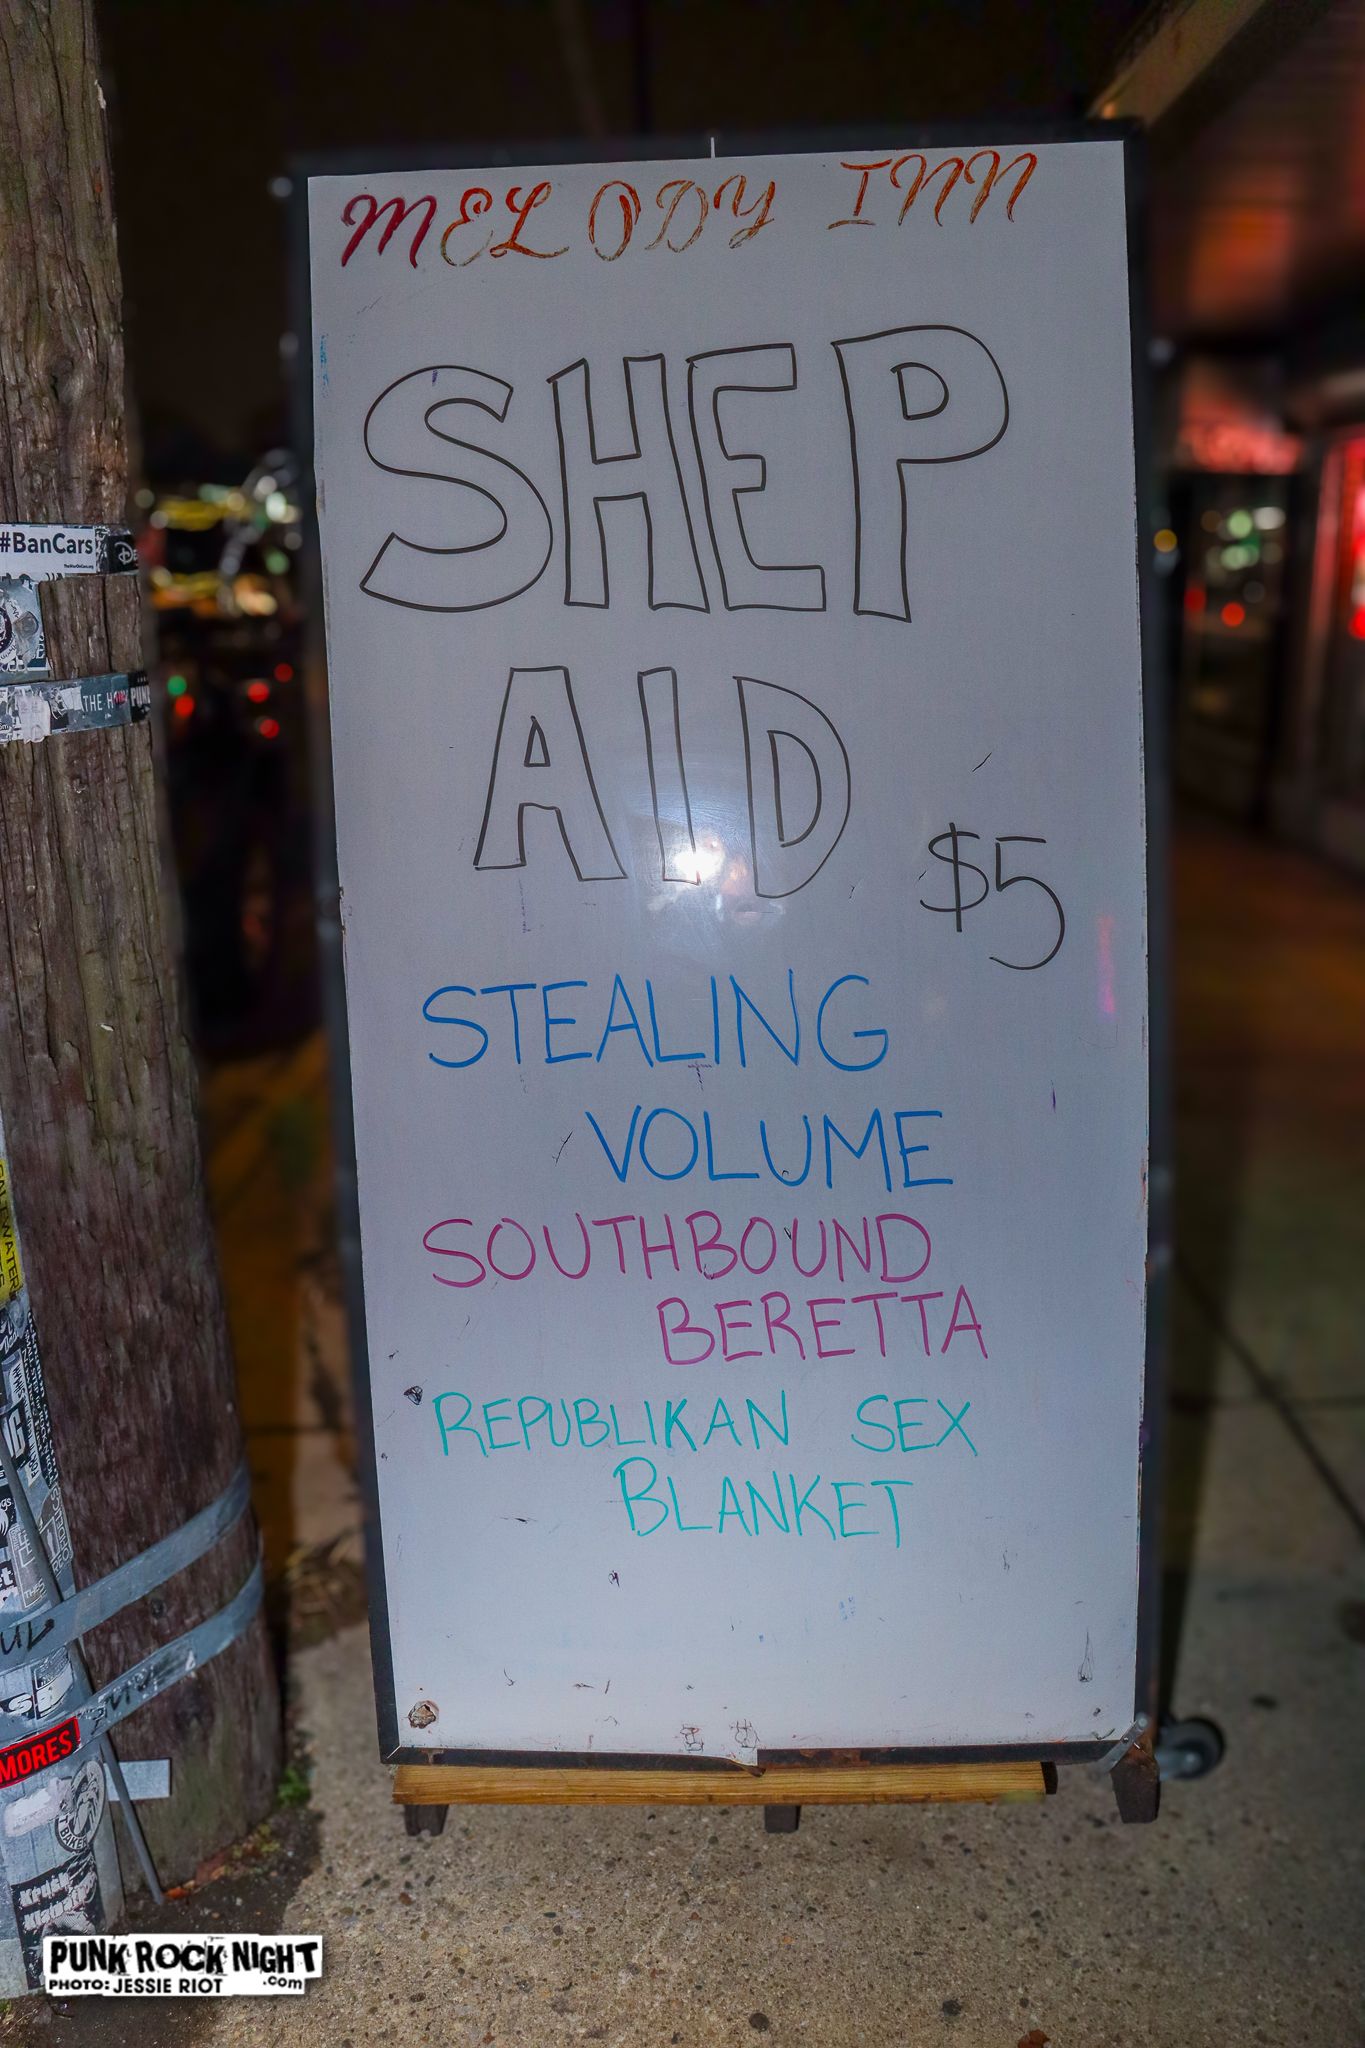 MELODY INN
SHEP
AID
$5
STEALING
VOLUME
SOUTHBOUND
BERETTA
REPUBLIKAN SEX
BLANKET
#BanCars
THE
PUNK
MORES
BAKER
PUNK ROCK NIGHT
PHOTO: JESSIE RIOT .com